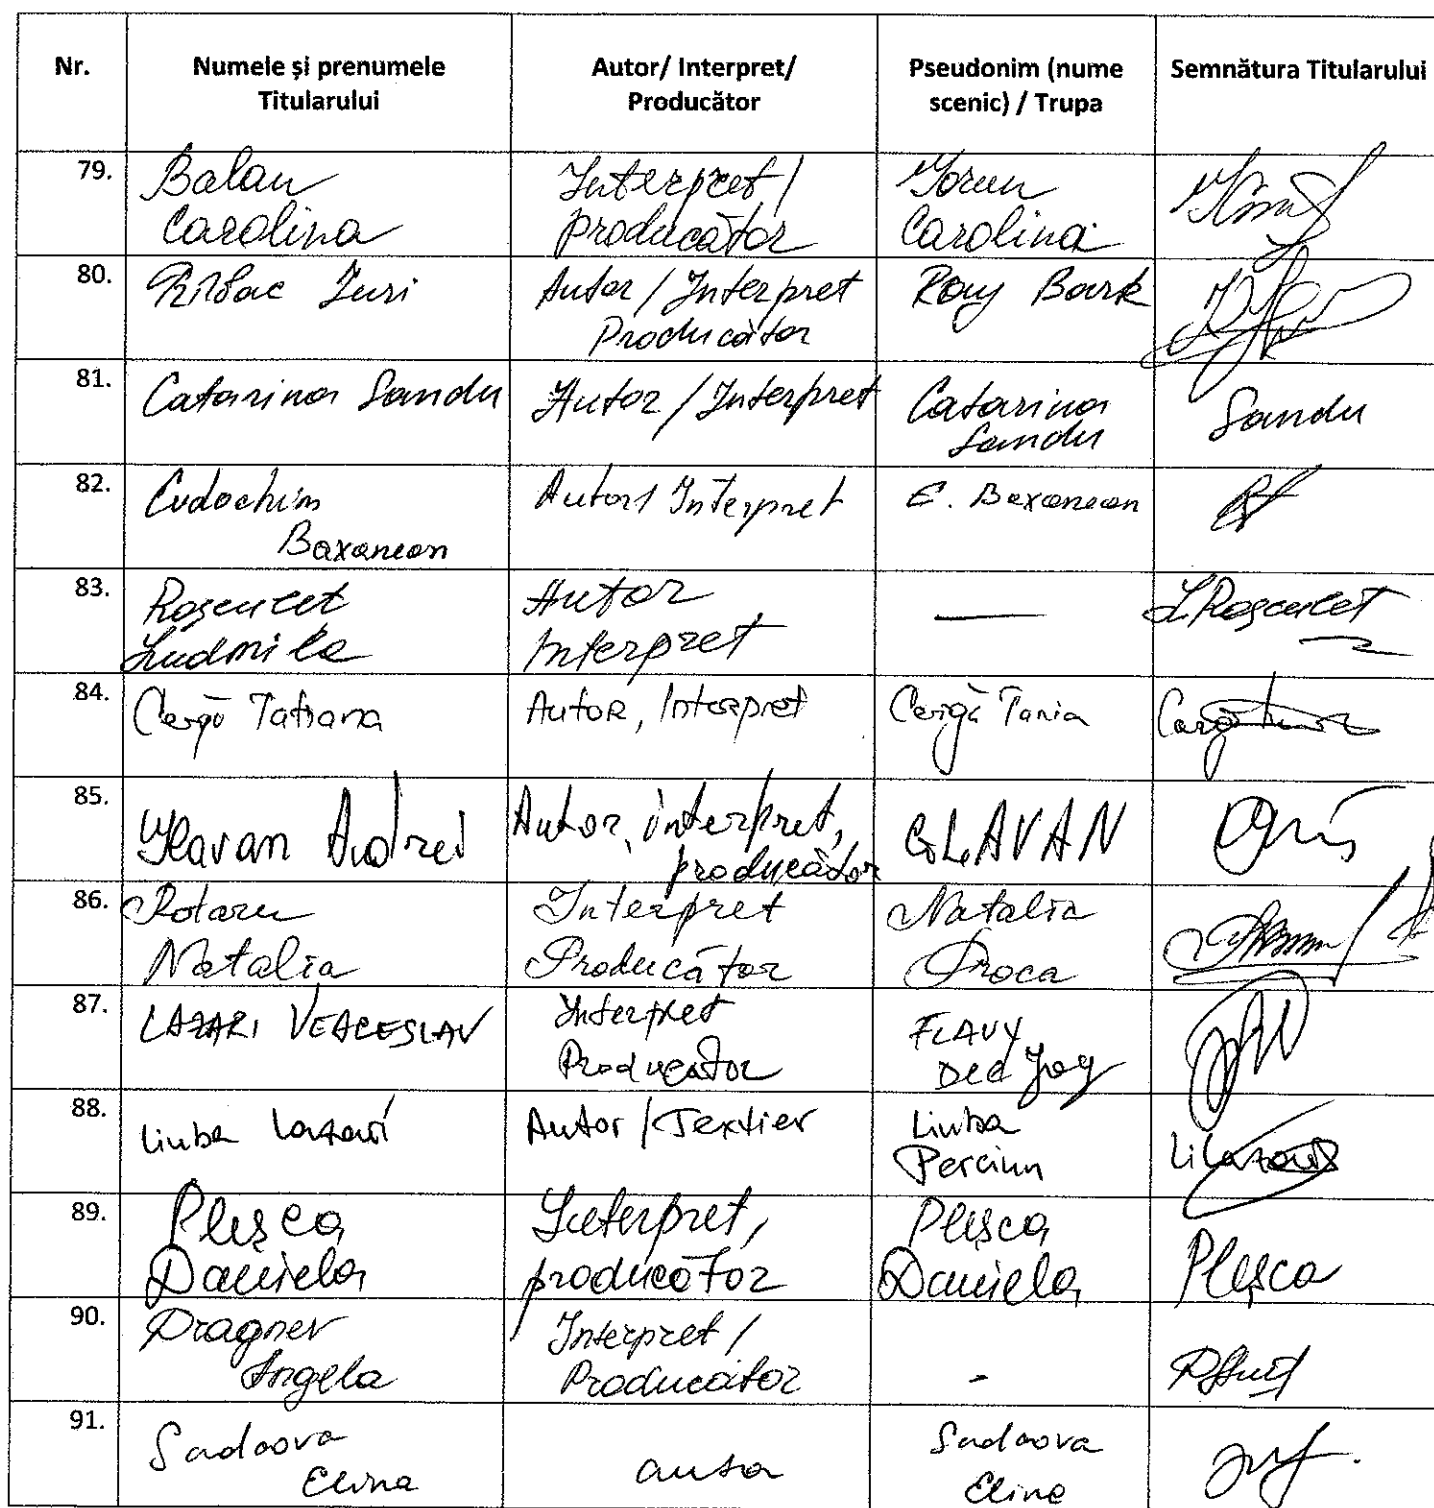 Nr.
Numele și prenumele
Titularului
Autor/ Interpret/
Producător
Pseudonim (nume
scenic) / Trupa
Semnătura Titularului
79.
Balan
Carolina
Interpret/
producător
Gorun
Carolina
80.
Rîbac Iuri
Autor / Interpret
Producător
Roy Bark
81.
Catarina Sandu
Autor / Interpret
Catarina
Sandu
Sandu
82.
Evdochim
Baxanean
Autor / Interpret
E. Baxanean
83.
Roșculeț
Ludmila
Autor
Interpret
—
L. Roșculeț
84.
Cergă Tatiana
Autor, Interpret
Cergă Tania
85.
Glavan Andrei
Autor, interpret,
producător
GLAVAN
86.
Rotaru
Natalia
Interpret
Producător
Natalia
Proca
87.
LAZARI VEACESLAV
Interpret
Producator
FLAVY
Dee Jay
88.
Liuba Lazari
Autor / Textier
Liuba
Perciun
89.
Pleșca
Daniela
Interpret,
producător
Pleșca
Daniela
Pleșca
90.
Dragnev
Angela
Interpret /
Producător
-
91.
Sadoova
Elina
autor
Sadoova
Elina